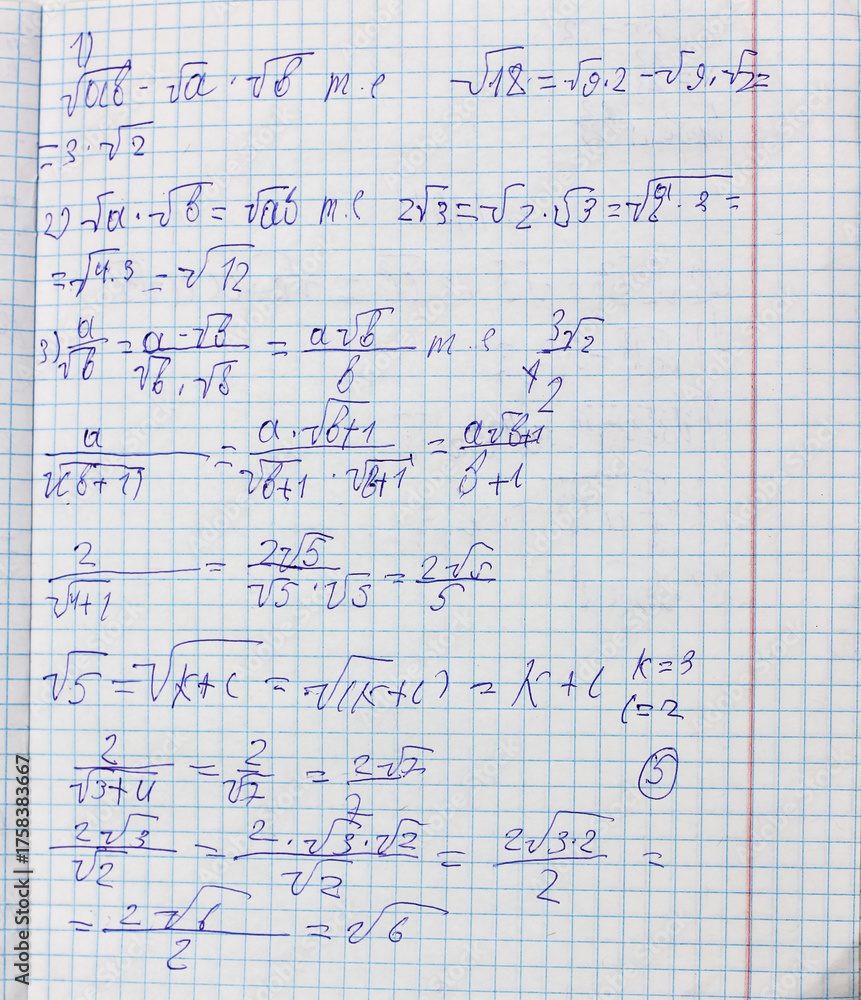 1)
√ab - √a · √b т.е √18 = √9·2 - √9 · √2 =
= 3 · √2
2) √a · √b = √ab т.е 2√3 = √2 · √3 = √2² · 3 =
= √4·3 = √12
3) a/√b = a·√b/√b · √b = a√b/b т.е 3√2/2
a/√(b+1) = a·√b+1/√b+1 · √b+1 = a√b+1/b+1
2/√4+1 = 2√5/√5 · √5 = 2√5/5
√5 = √k+c = √(k+c) = k+c k=3
c=2
2/√3+4 = 2/√7 = 2√7/7 5
2√3/√2 = 2·√3·√2/√2 = 2√3·2/2 =
= 2√6/2 = √6
Adobe Stock | #1758383667